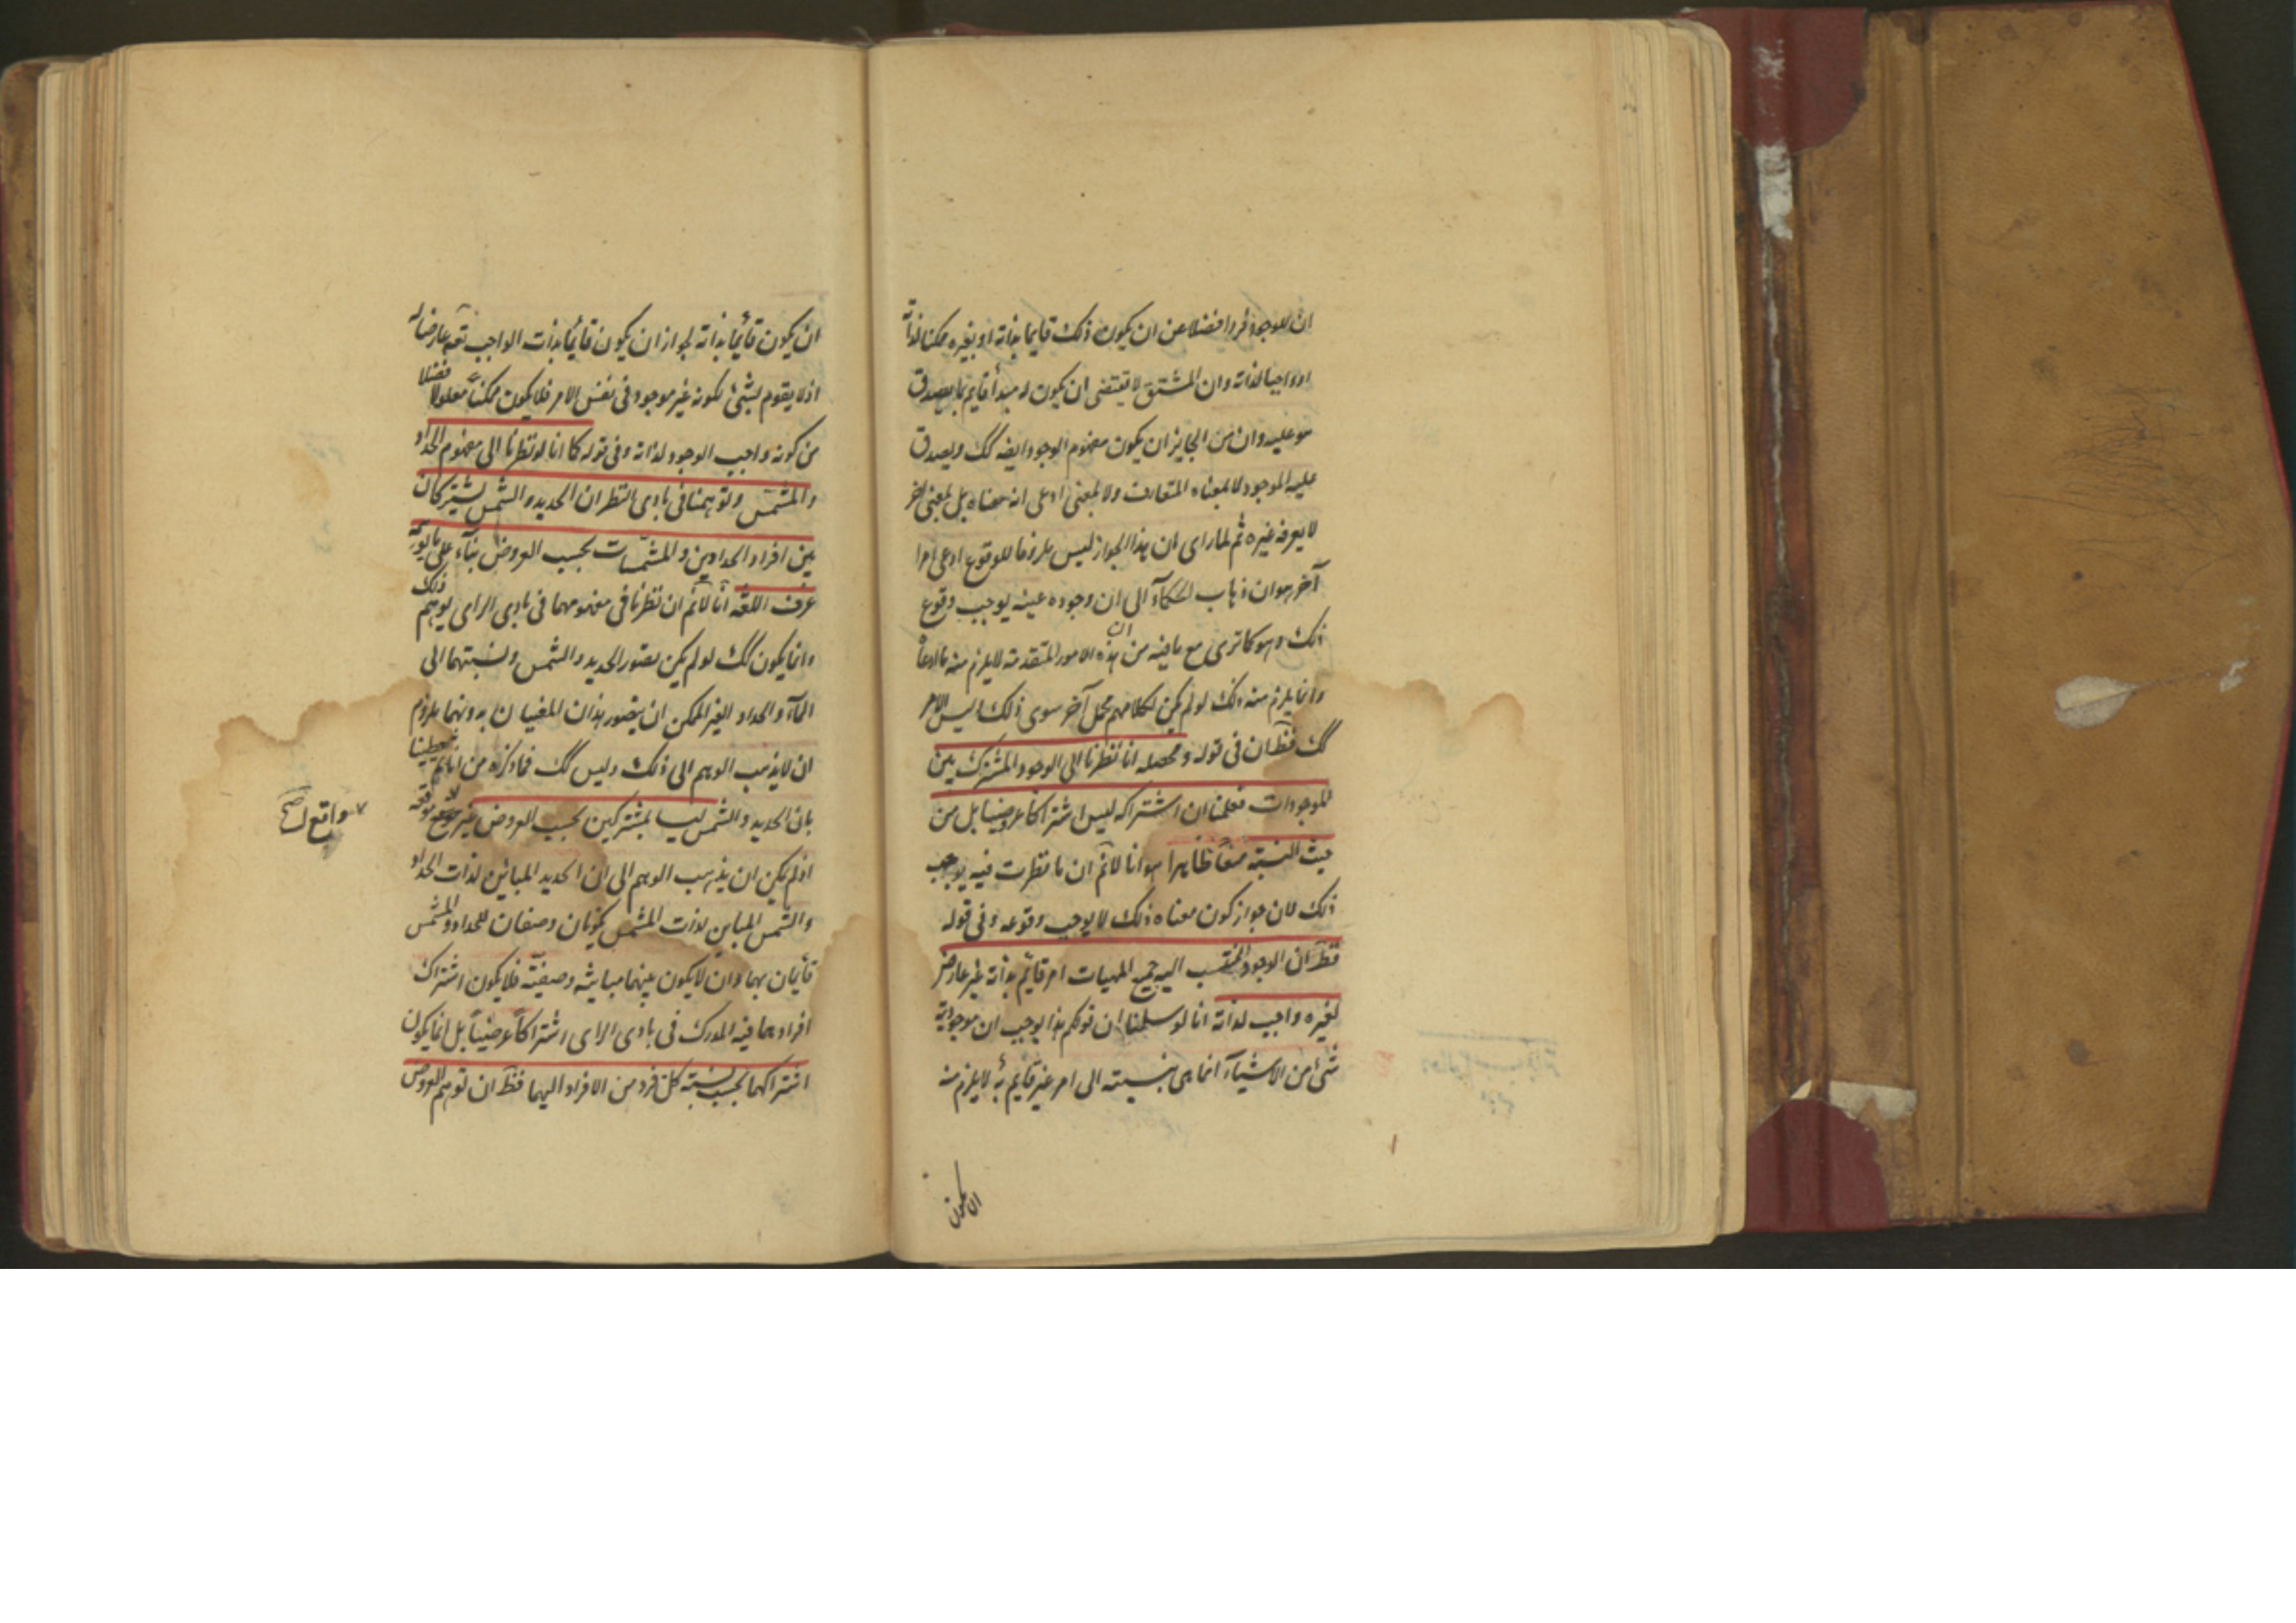 ان للوجود فردا فضلا عن ان يكون ذلك قايما بذاته او بغيره ممكنا لذاته
او واجبا لذاته وان المشتق لا تقتضى ان يكون له مبدأ قايم بما يصدق
هو عليه وان من الجايز ان يكون مفهوم الوجود ايضه كك ويصدق
عليه الموجود لا بمعناه المتعارف ولا بمعنى ادعى انه معناه بل بمعنى آخر
لا يعرفه غيره ثم لما راى ان هذا الجواز ليس ملزوما للوقوع ادعى امرا
آخر هو ان ذهاب الحكمآء الى ان وجوده عينه يوجب وقوع
ذلك وهو كما ترى مع ما فيه من ان هذه الامور المتقدمة لا يلزم منه ما ادعاه
وانما يلزم منه ذلك لو لم يكن لكلامهم محمل آخر سوى ذلك وليس الامر
كك فظ ان فى قوله ومحصله انا نظرنا الى الوجود المشترك بين
الموجودات فعلمنا ان اشتراكه ليس اشتراكا عروضيا بل من
حيث النسبة منعا ظاهرا هو انا لانم ان ما نظرت فيه يوجب
ذلك لان جواز كون معناه ذلك لا يوجب وقوعه وفى قوله
فظ ان الوجود المنتسب اليه جميع المهيات امر قائم بذاته غير عارض
لغيره واجب لذاته انا لو سلمنا ان قولكم هذا يوجب ان موجودية
شئ من الاشيآء انما هى بنسبته الى امر غير قايم به لا يلزم منه
ان يكون
ان يكون قائما بذاته لجواز ان يكون قائما بذات الواجب تعه عارضا له
اذ لا يقوم بشئ لكونه غير موجود فى نفس الامر فلا يكون ممكنا معلولا فضلا
من كونه واجب الوجود لذاته وفى قوله كما انا لو نظرنا الى مفهوم الحداد
والمشمس وتوهمنا فى بادى النظر ان الحديد والشمس يشتركان
بين افراد الحدادين والمشمسات بحسب العروض بنآء على ما يوهمه
عرف اللغة انا لانم ان نظرنا فى مفهومهما فى بادى الراى يوهم ذلك
وانما يكون كك لو لم يكن تصور الحديد والشمس ونسبتهما الى
المآء والحداد الغير الممكن ان يتصور هذان المعنيان بدونهما ملزوم
ان لا يذهب الوهم الى ذلك وليس كك فما ذكره من
بان الحديد والشمس ليسا بمشتركين بحسب العروض غير
واقع صح
اذ لم يكن ان يذهب الوهم الى ان الحديد المباين لذات الحداد
والشمس المباين لذات المشمس يكونان وصفان للحداد والمشمس
قائمان بهما وان لا يكون بينهما مباينة وصفية فلا يكون اشتراك
افرادهما فيه المدرك فى بادى الراى اشتراكا عرضيا بل انما يكون
اشتراكهما بحسب نسبة كل فرد من الافراد اليهما فظ ان توهم العروض